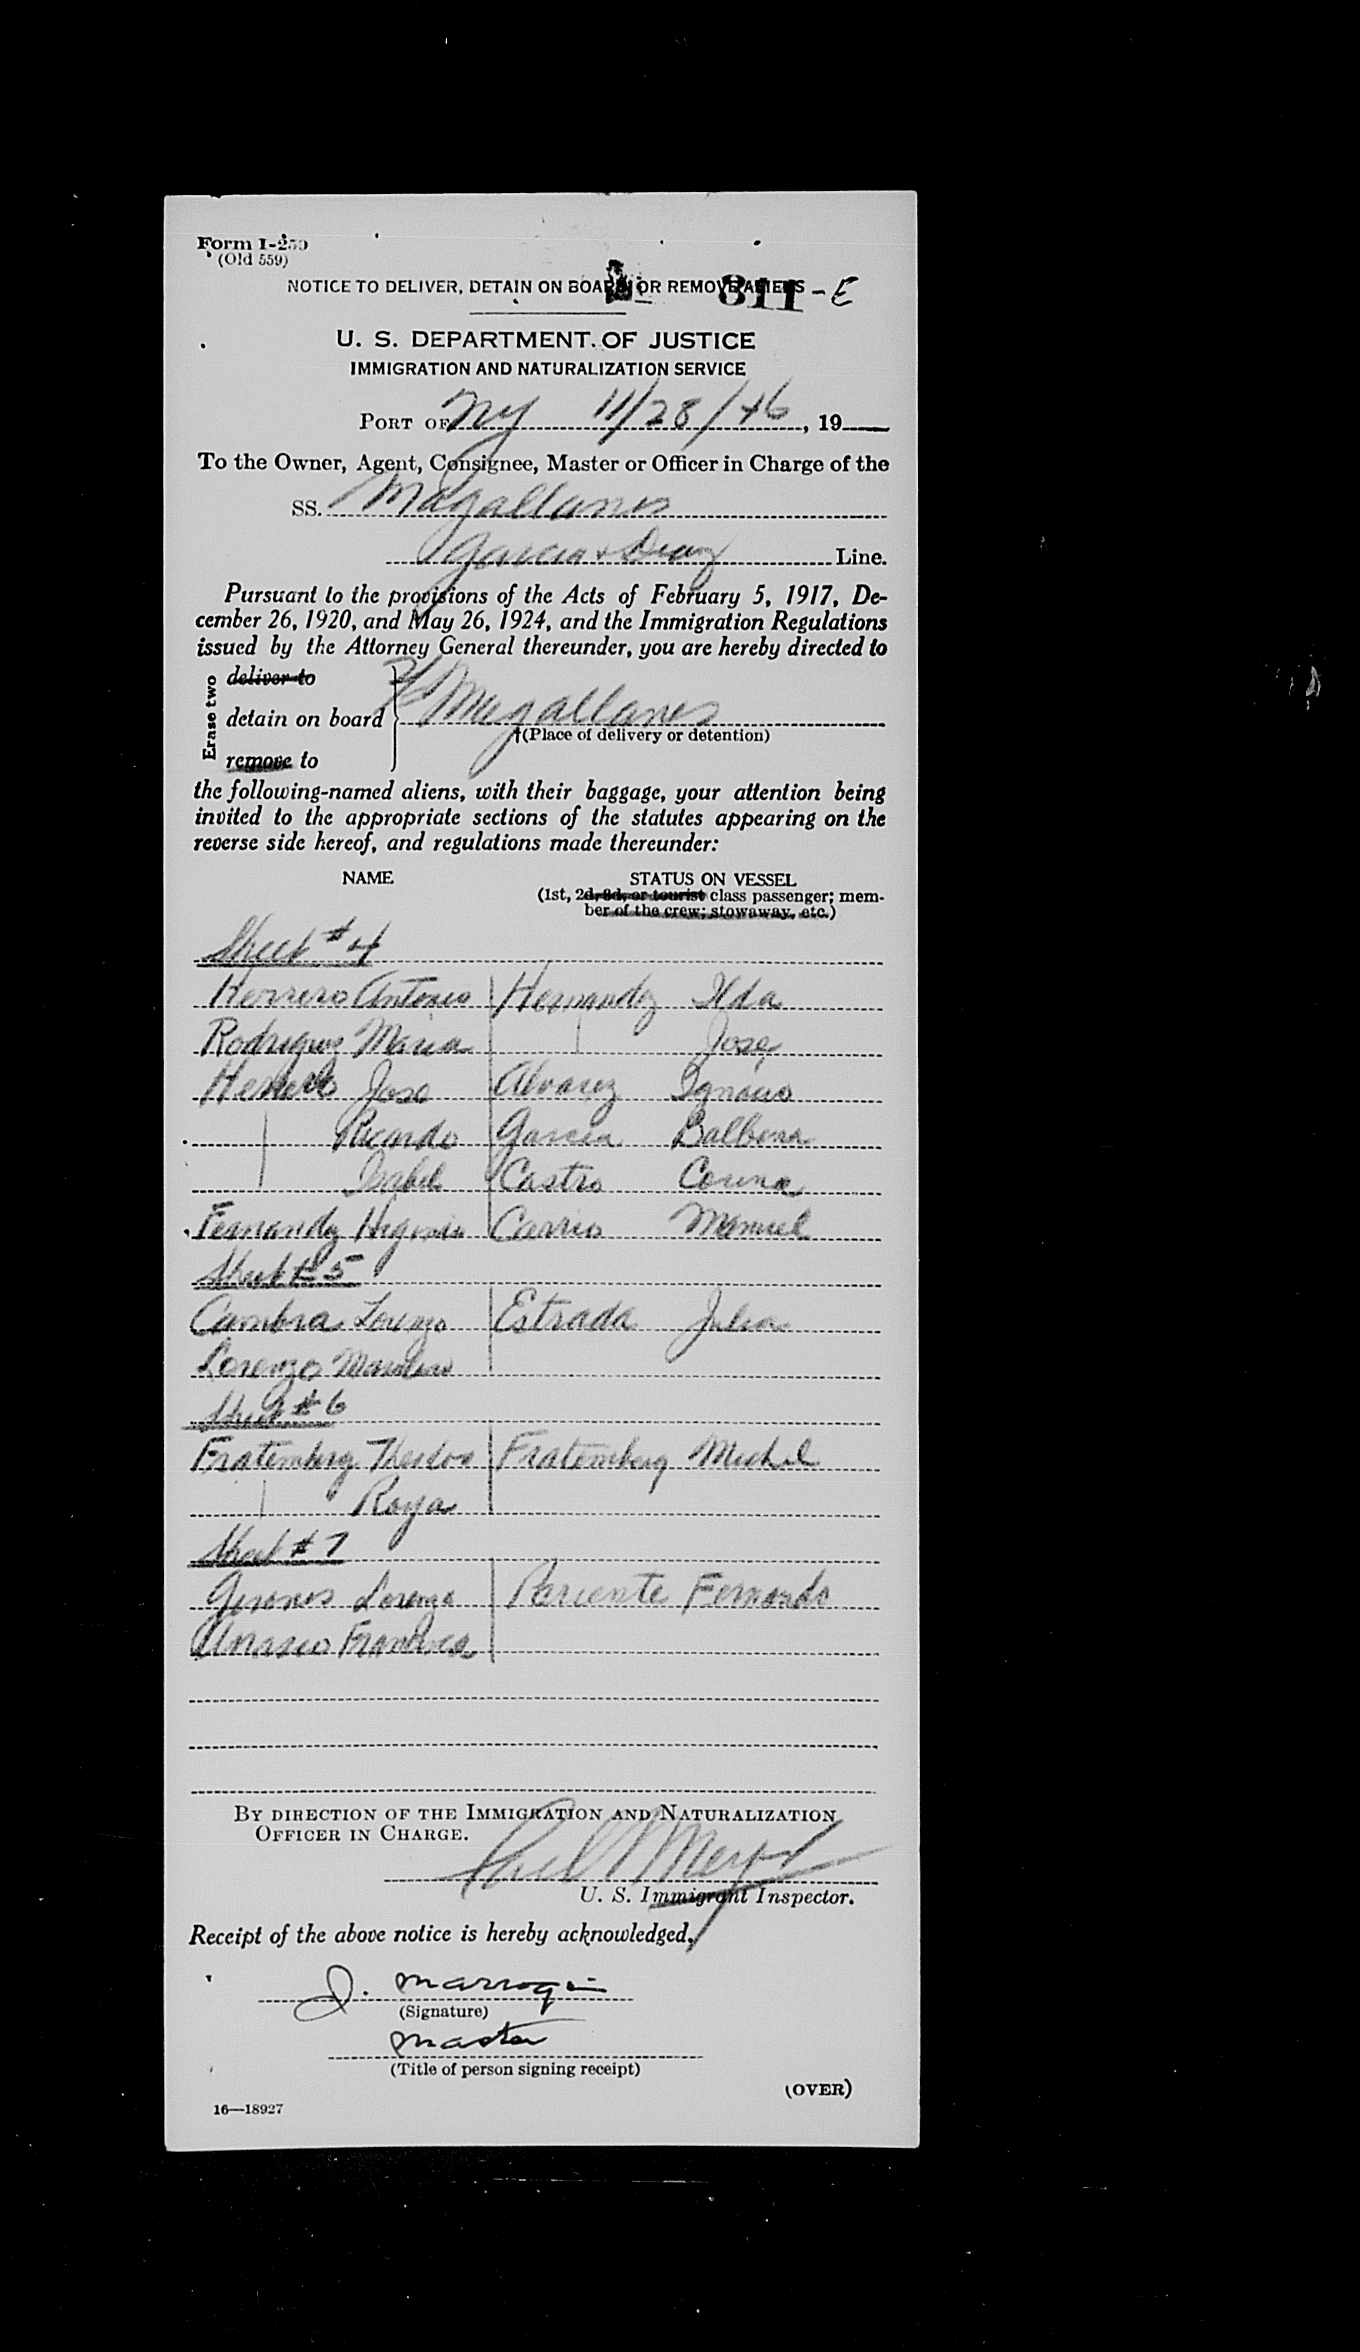 Form I-259
(Old 559)
NOTICE TO DELIVER, DETAIN ON BOARD, OR REMOVE ALIENS
811-E
U. S. DEPARTMENT OF JUSTICE
IMMIGRATION AND NATURALIZATION SERVICE
PORT OF NY 11/28/46, 19
To the Owner, Agent, Consignee, Master or Officer in Charge of the
SS. Magallanes
Garcia & Diaz Line.
Pursuant to the provisions of the Acts of February 5, 1917, De-
cember 26, 1920, and May 26, 1924, and the Immigration Regulations
issued by the Attorney General thereunder, you are hereby directed to
Erase two
deliver to
detain on board
remove to
Magallanes
†(Place of delivery or detention)
the following-named aliens, with their baggage, your attention being
invited to the appropriate sections of the statutes appearing on the
reverse side hereof, and regulations made thereunder:
NAME STATUS ON VESSEL
(1st, 2d, 3d, or tourist class passenger; mem-
ber of the crew; stowaway, etc.)
Sheet #4
Herrero Antonio Hernandez Ilda
Rodriguez Maria Jose
Herrero Jose Alvarez Ignacio
Ricardo Garcia Balbina
Isabel Castro Corina
Fernandez Higinio Carrio Manuel
Sheet #5
Cambra Lorenzo Estrada Julia
Lorenzo
Sheet #6
Fratemberg Theodor Fratemberg Michel
Roya
Sheet #7
Gerones Lorenzo Pariente Fernando
Francisca
BY DIRECTION OF THE IMMIGRATION AND NATURALIZATION
OFFICER IN CHARGE.
U. S. Immigrant Inspector.
Receipt of the above notice is hereby acknowledged,
J. Marroqui
(Signature)
Master
(Title of person signing receipt)
(OVER)
16—18927